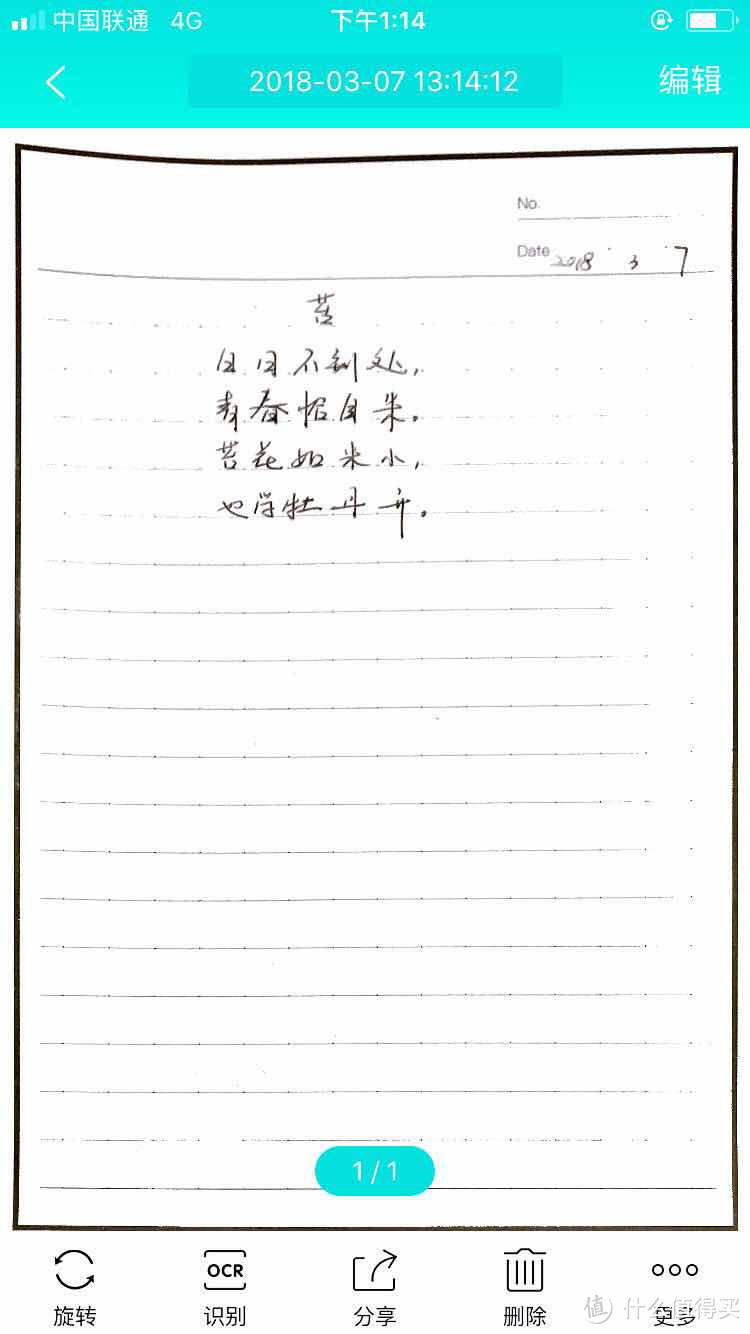 中国联通 4G 下午1:14
2018-03-07 13:14:12 编辑
No.
Date 2018 3 7
苔
白日不到处，
青春恰自来。
苔花如米小，
也学牡丹开。
1/1
OCR
旋转 识别 分享 删除 更多
值 什么值得买